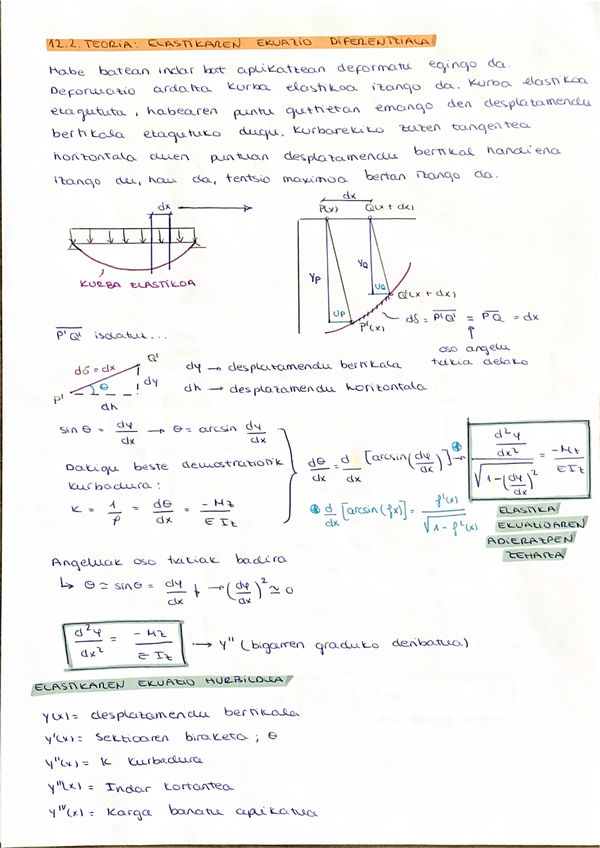 12.2. TEORIA: ELASTIKAREN EKUAZIO DIFERENTZIALA
Habe batean indar bat aplikatzean deformatu egingo da.
Deformazio ardatza kurba elastikoa izango da. Kurba elastikoa
ezagututa, habearen puntu guztietan emango den desplazamendu
bertikala ezagutuko dugu. Kurbarekiko zuzen tangentea
horizontala duen puntuan desplazamendu bertikal handiena
izango du, hau da, tentsio maximoa bertan izango da.
dx
KURBA ELASTIKOA
dx
P(x) Q(x + dx)
Yp YQ
UP UQ
Q'(x + dx)
P'(x)
dδ = P'Q' = PQ = dx
oso angelu
txikia delako
P'Q' isolatuz...
dδ = dx Q'
P' θ dy
dh
dy → desplazamendu bertikala
dh → desplazamendu horizontala
sin θ = dy/dx → θ = arcsin dy/dx
Dakigu beste demostraziotik
kurbadura:
K = 1/ρ = dθ/dx = -Mz/E Iz
dθ/dx = d/dx [arcsin(dy/dx)] →
d/dx [arcsin(fx)] = f'(x)/√1 - f²(x)
d²y/dx² / √1-(dy/dx)² = -Mz/E Iz
ELASTIKA
EKUAZIOAREN
ADIERAZPEN
ZEHATZA
Angeluak oso txikiak badira
↳ θ ≃ sinθ = dy/dx ↓ → (dy/dx)² ≃ 0
d²y/dx² = -Mz/E Iz → y'' (bigarren graduko deribatua)
ELASTIKAREN EKUAZIO HURBILDUA
y(x) = desplazamendu bertikala
y'(x) = Sekzioaren biraketa ; θ
y''(x) = K kurbadura
y'''(x) = Indar kortantea
y''''(x) = Karga banatu aplikatua